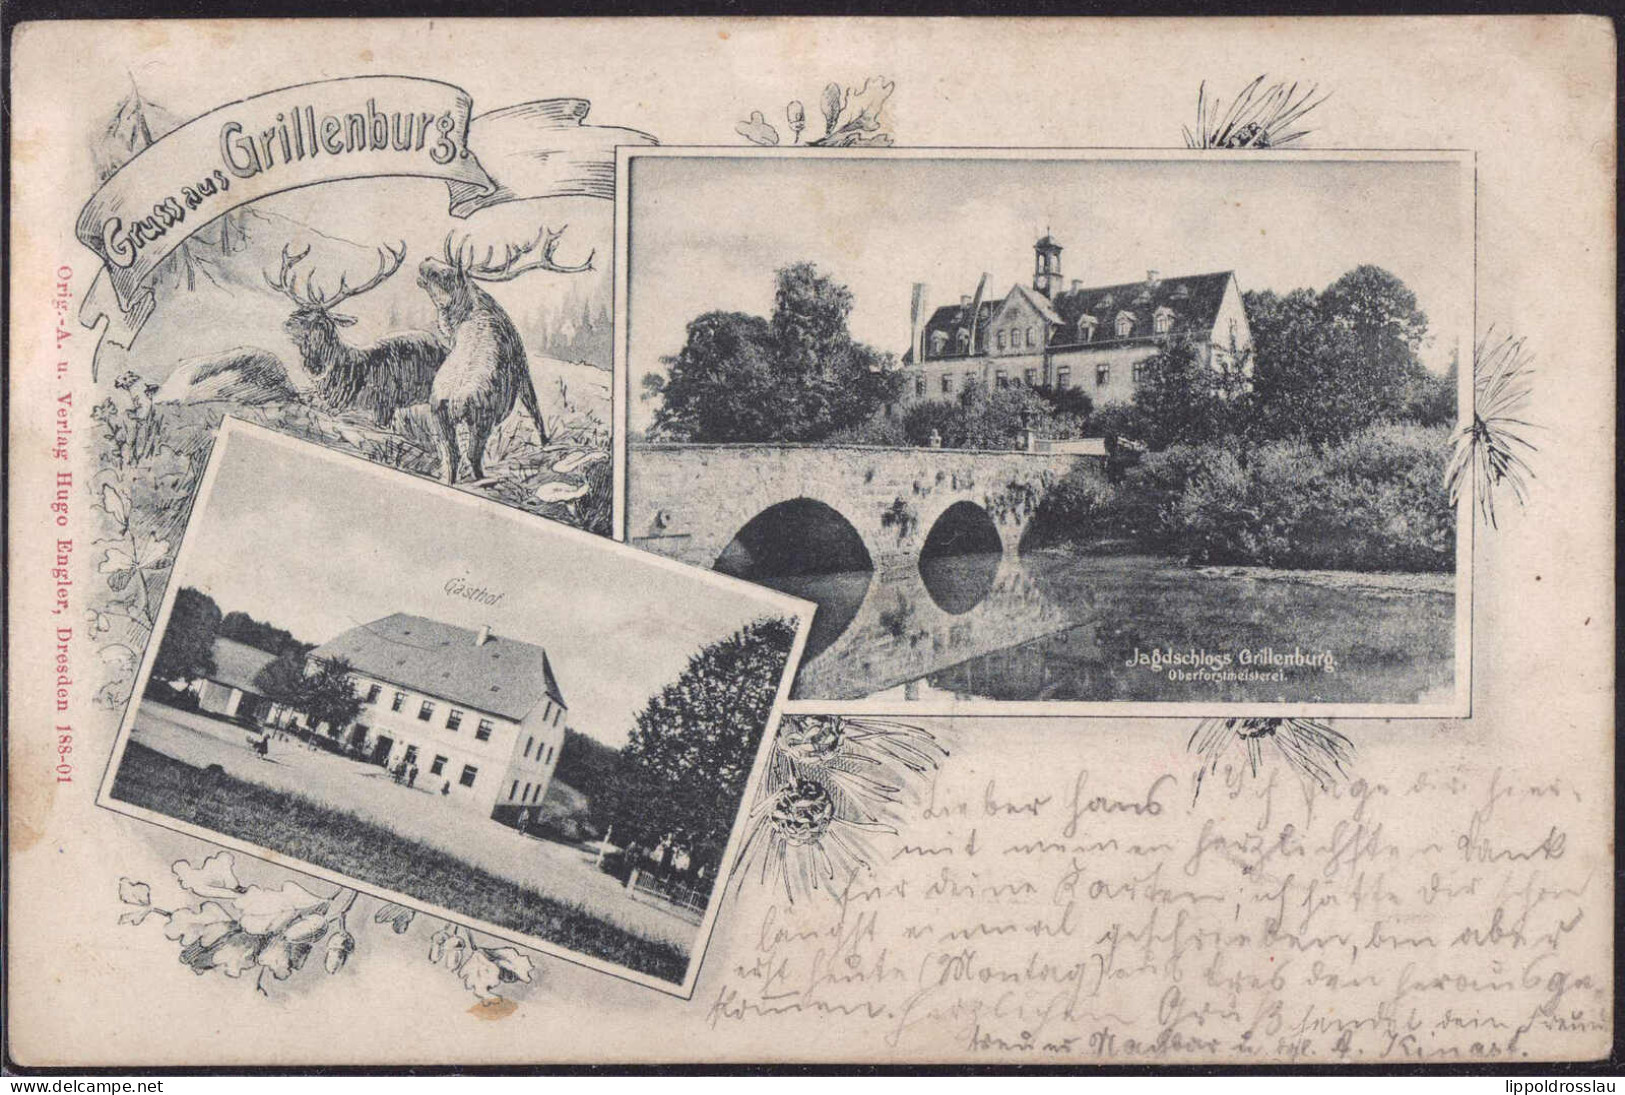 Gruss aus Grillenburg.
Orig.-A. u. Verlag Hugo Engler, Dresden 188-01
Gasthof
Jagdschloss Grillenburg.
Oberforstmeisterei.
Lieber Hans! Ich sage dir hier-
mit meinen herzlichsten Dank
für deine Karten, ich hätte dir schon
längst einmal geschrieben, bin aber
erst heute (Montag) aus Dresden herausge-
kommen. Herzlichen Gruß sendet dein Freund
treuer Nachbar u. A. Kinast.
lippoldrosslau
delcampe.net